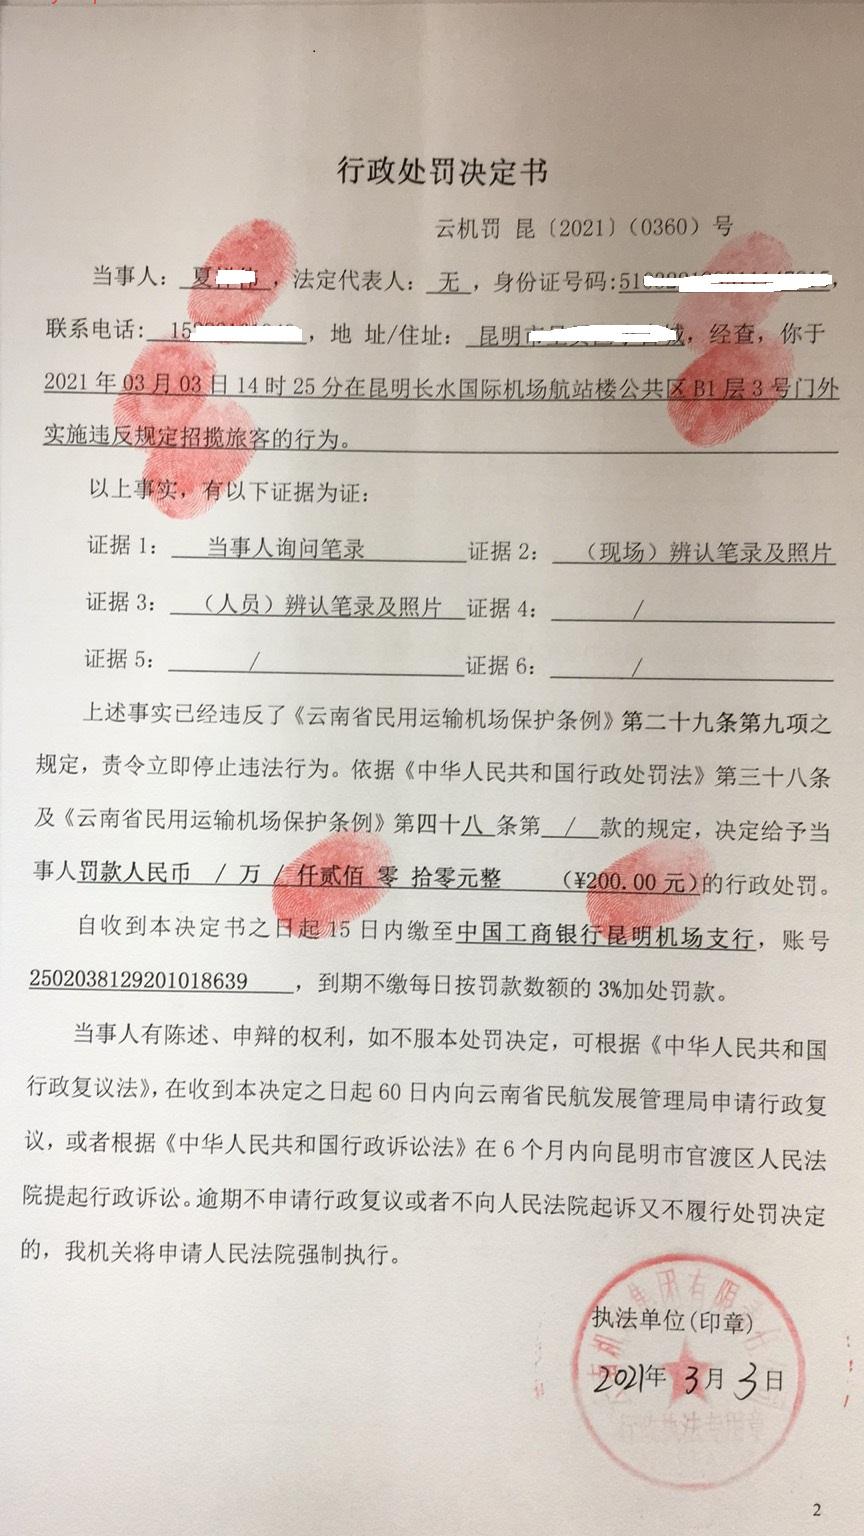 行政处罚决定书
云机罚 昆〔2021〕（0360）号
当事人： 夏 ，法定代表人： 无 ，身份证号码:51
联系电话： 15 ，地 址/住址： 昆明市 ，经查，你于
2021 年 03 月 03 日 14 时 25 分在昆明长水国际机场航站楼公共区 B1 层 3 号门外
实施违反规定招揽旅客的行为。
以上事实，有以下证据为证：
证据 1： 当事人询问笔录 证据 2： （现场）辨认笔录及照片
证据 3： （人员）辨认笔录及照片 证据 4： /
证据 5： / 证据 6： /
上述事实已经违反了《云南省民用运输机场保护条例》第二十九条第九项之
规定，责令立即停止违法行为。依据《中华人民共和国行政处罚法》第三十八条
及《云南省民用运输机场保护条例》第四十八 条第 / 款的规定，决定给予当
事人罚款人民币 / 万 / 仟贰佰 零 拾零元整 （¥200.00 元）的行政处罚。
自收到本决定书之日起 15 日内缴至中国工商银行昆明机场支行，账号
2502038129201018639 ，到期不缴每日按罚款数额的 3%加处罚款。
当事人有陈述、申辩的权利，如不服本处罚决定，可根据《中华人民共和国
行政复议法》，在收到本决定之日起 60 日内向云南省民航发展管理局申请行政复
议，或者根据《中华人民共和国行政诉讼法》在 6 个月内向昆明市官渡区人民法
院提起行政诉讼。逾期不申请行政复议或者不向人民法院起诉又不履行处罚决定
的，我机关将申请人民法院强制执行。
集团有限
执法单位(印章)
2021年 3月 3日
行政执法专用章
2